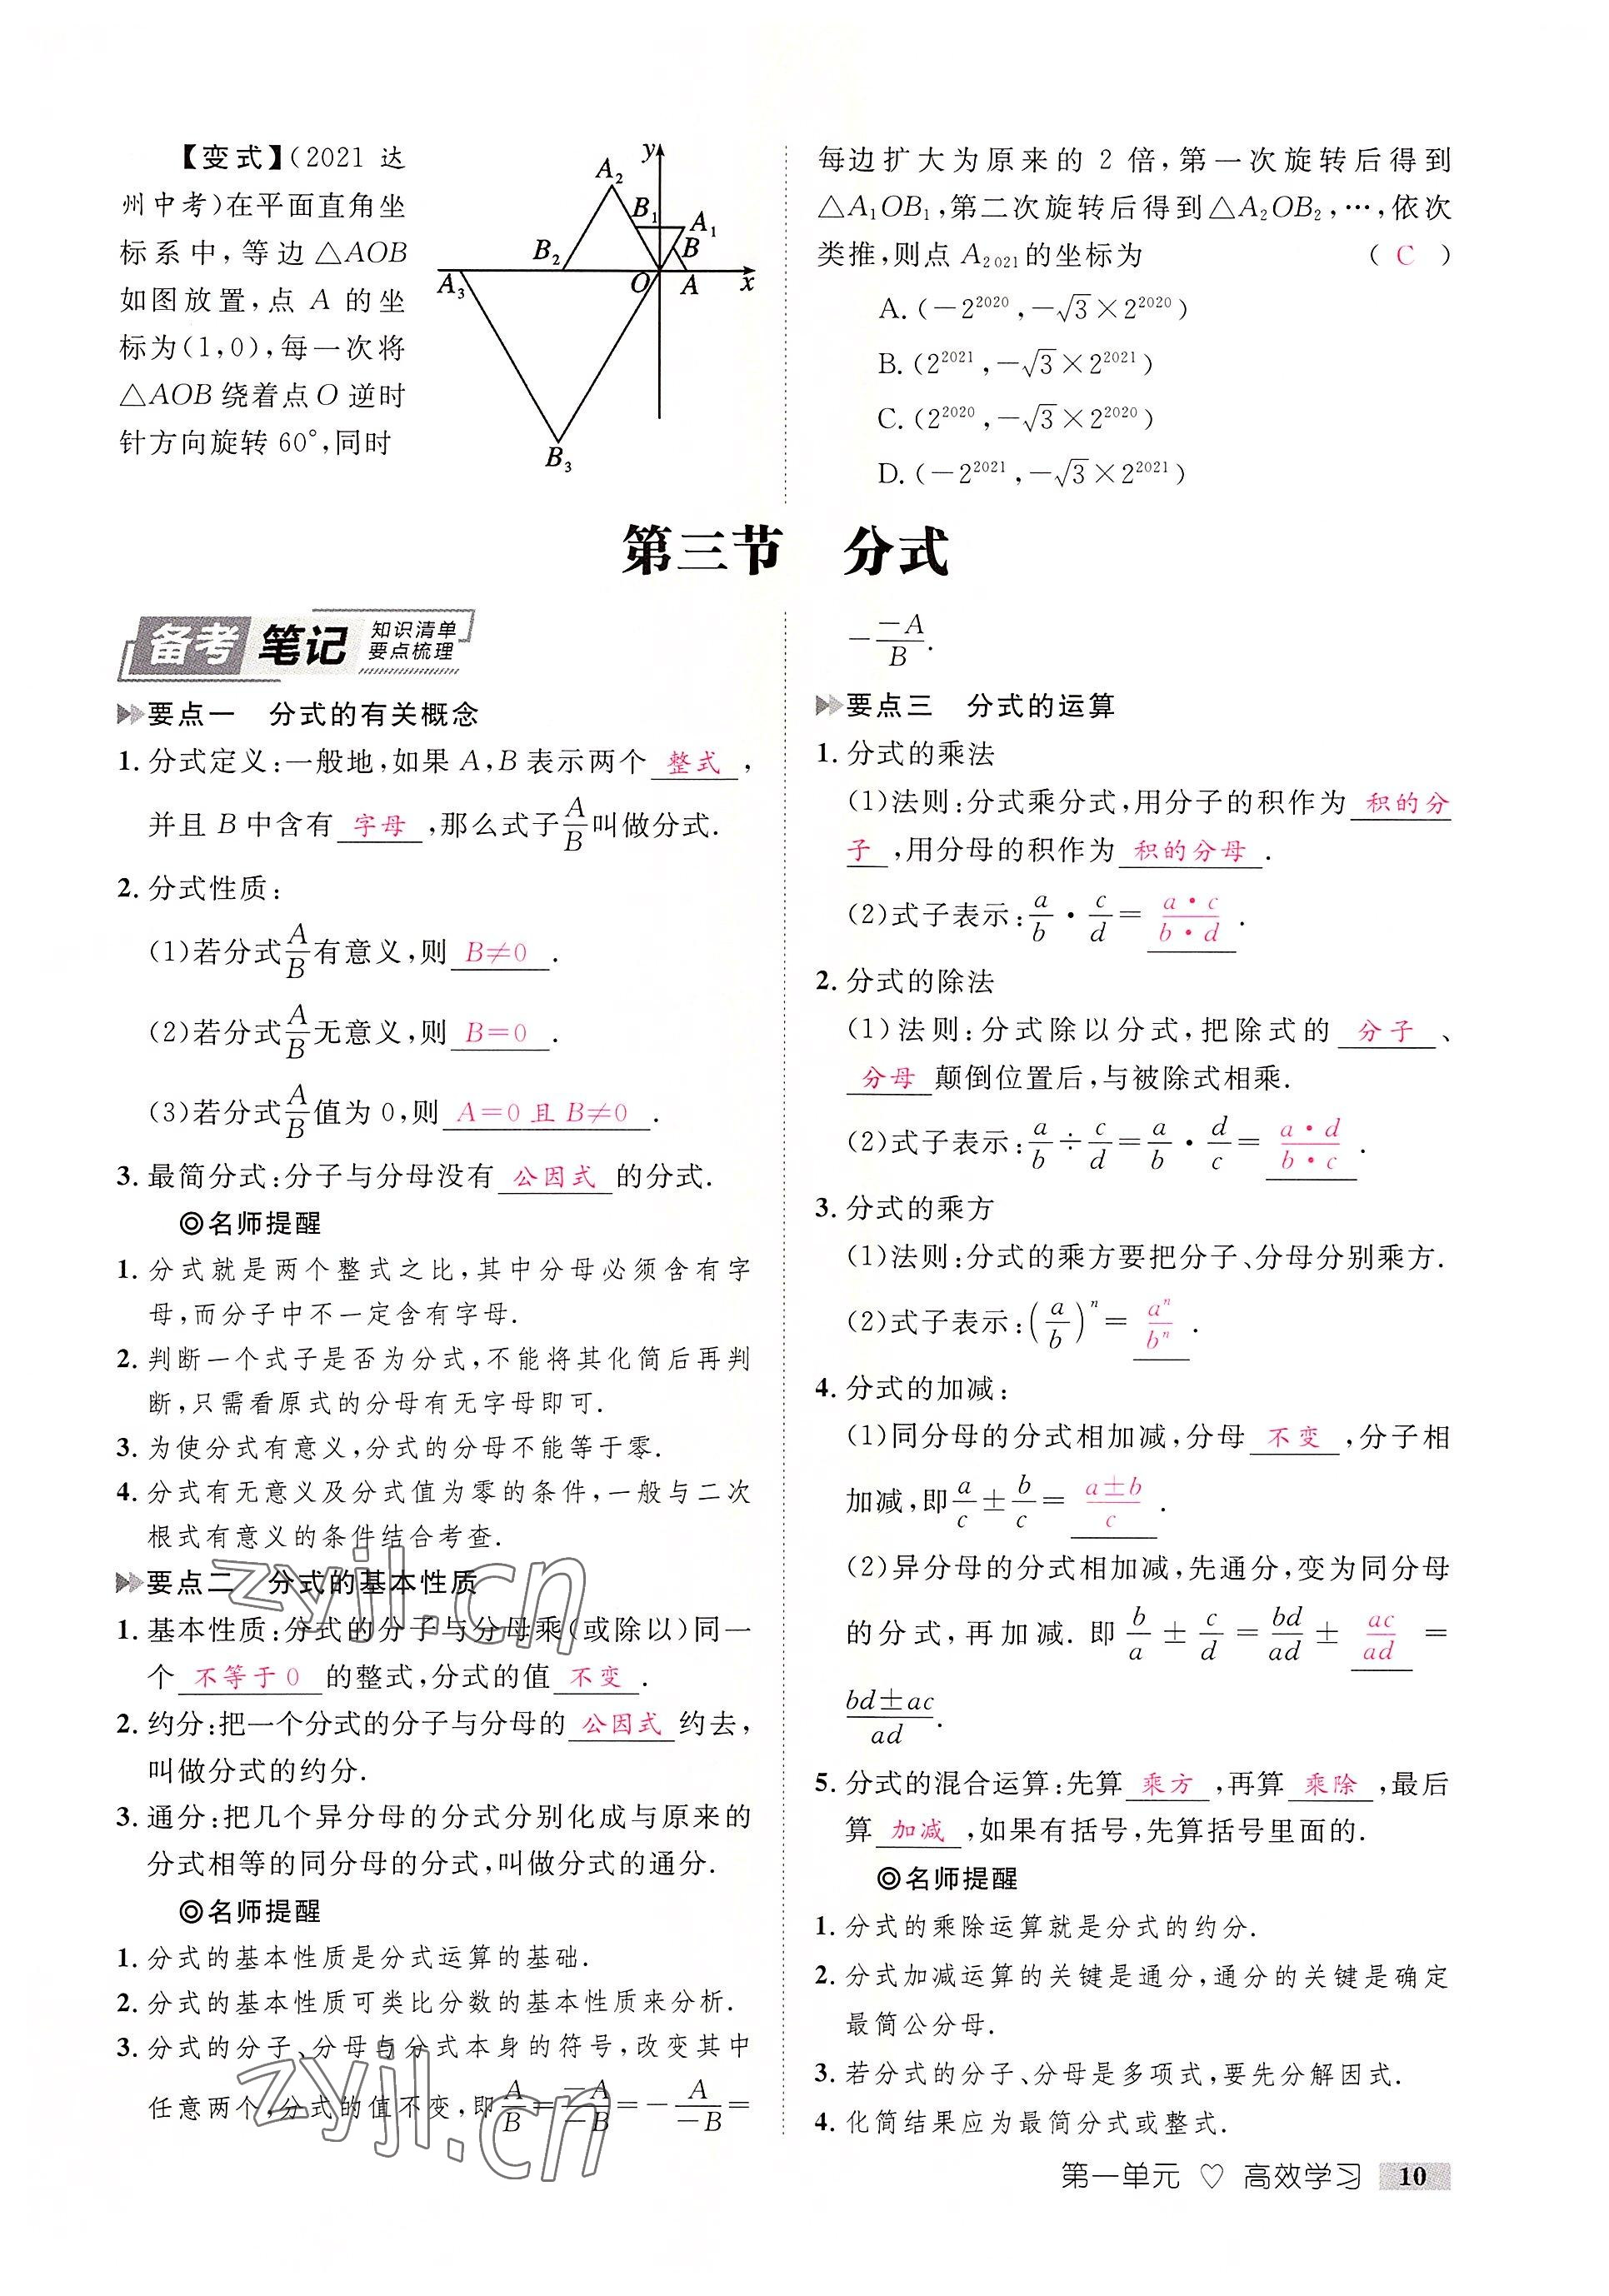 【变式】(2021 达
州中考)在平面直角坐
标系中,等边△AOB
如图放置,点 A 的坐
标为(1,0),每一次将
△AOB 绕着点 O 逆时
针方向旋转 60°,同时
y
A₂
B₁
A₁
B
B₂
A₃
O
A
x
B₃
每边扩大为原来的 2 倍,第一次旋转后得到
△A₁OB₁,第二次旋转后得到△A₂OB₂,…,依次
类推,则点 A₂₀₂₁的坐标为 ( C )
A.(-2²⁰²⁰,-√3×2²⁰²⁰)
B.(2²⁰²¹,-√3×2²⁰²¹)
C.(2²⁰²⁰,-√3×2²⁰²⁰)
D.(-2²⁰²¹,-√3×2²⁰²¹)
第三节 分式
备考 笔记 知识清单
要点梳理
要点一 分式的有关概念
1. 分式定义:一般地,如果 A,B 表示两个 整式 ,
并且 B 中含有 字母 ,那么式子 A/B 叫做分式.
2. 分式性质:
(1)若分式 A/B 有意义,则 B≠0 .
(2)若分式 A/B 无意义,则 B=0 .
(3)若分式 A/B 值为 0,则 A=0 且 B≠0 .
3. 最简分式:分子与分母没有 公因式 的分式.
◎名师提醒
1. 分式就是两个整式之比,其中分母必须含有字
母,而分子中不一定含有字母.
2. 判断一个式子是否为分式,不能将其化简后再判
断,只需看原式的分母有无字母即可.
3. 为使分式有意义,分式的分母不能等于零.
4. 分式有无意义及分式值为零的条件,一般与二次
根式有意义的条件结合考查.
要点二 分式的基本性质
1. 基本性质:分式的分子与分母乘(或除以)同一
个 不等于 0 的整式,分式的值 不变 .
2. 约分:把一个分式的分子与分母的 公因式 约去,
叫做分式的约分.
3. 通分:把几个异分母的分式分别化成与原来的
分式相等的同分母的分式,叫做分式的通分.
◎名师提醒
1. 分式的基本性质是分式运算的基础.
2. 分式的基本性质可类比分数的基本性质来分析.
3. 分式的分子、分母与分式本身的符号,改变其中
任意两个,分式的值不变,即 A/B = -A/-B = - A/-B =
- -A/B.
要点三 分式的运算
1. 分式的乘法
(1)法则:分式乘分式,用分子的积作为 积的分
子 ,用分母的积作为 积的分母 .
(2)式子表示: a/b · c/d = a·c/b·d .
2. 分式的除法
(1)法则:分式除以分式,把除式的 分子 、
分母 颠倒位置后,与被除式相乘.
(2)式子表示: a/b ÷ c/d = a/b · d/c = a·d/b·c .
3. 分式的乘方
(1)法则:分式的乘方要把分子、分母分别乘方.
(2)式子表示:(a/b)ⁿ = aⁿ/bⁿ .
4. 分式的加减:
(1)同分母的分式相加减,分母 不变 ,分子相
加减,即 a/c ± b/c = a±b/c .
(2)异分母的分式相加减,先通分,变为同分母
的分式,再加减. 即 b/a ± c/d = bd/ad ± ac/ad =
bd±ac/ad.
5. 分式的混合运算:先算 乘方 ,再算 乘除 ,最后
算 加减 ,如果有括号,先算括号里面的.
◎名师提醒
1. 分式的乘除运算就是分式的约分.
2. 分式加减运算的关键是通分,通分的关键是确定
最简公分母.
3. 若分式的分子、分母是多项式,要先分解因式.
4. 化简结果应为最简分式或整式.
zyjl.cn
zyjl.cn
第一单元 ♡ 高效学习 10